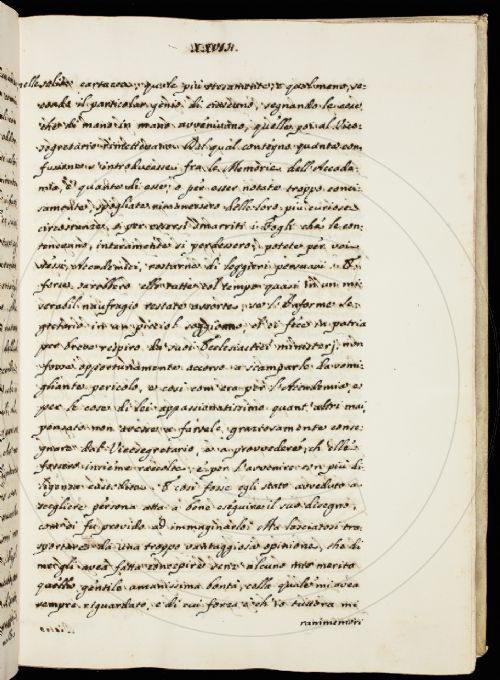 XXVII.
nelle solite cartucce, quale più stesamente, e qual meno, se-
condo il particolar genio di ciascuno, segnando le cose
che di mano in mano avvenivano, quelle poi al Vice-
segretario rimettevano. Dal qual contegno quanta con-
fusione s'introducesse fra le Memorie dell'Accade-
mia, e quante di esse, o per esser notate troppo conci-
samente, spogliate rimanessero delle loro più curiose
circostanze, o per essersi smarriti i Fogli che le con-
tenevano, interamente si perdessero, potete per voi
stessi, Accademici, restarne di leggieri persuasi. E
forse sarebbero elle tutte col tempo quasi in un mi-
serabil naufragio restate assorte, se l'Informe Se-
gretario in un picciol soggiorno, ch'ei fece in patria
per breve respiro da' suoi Ecclesiastici ministerj, non
fosse opportunamente accorso a scamparle da somi-
gliante pericolo, e così com'era per l'Accademia, e
per le cose di lei appassionatissimo quant'altri mai,
pensato non avesse a farsele graziosamente conse-
gnare dal Vicesegretario, e a provvedere, ch'elle
fossero insieme raccolte, e per l'avvenire con più di-
ligenza custodite. E così fosse egli stato avveduto a
scegliere persona atta a bene eseguire il suo disegno,
com'ei fu provido ad immaginarlo. Ma lasciatosi tra-
sportare da una troppo vantaggiosa opinione, che di
me gli avea fatta concepire senz'alcuno mio merito
quella gentile amanissima bontà, colla quale mi avea
sempre riguardato, e di cui forza è ch'io tuttora mi
rammemori